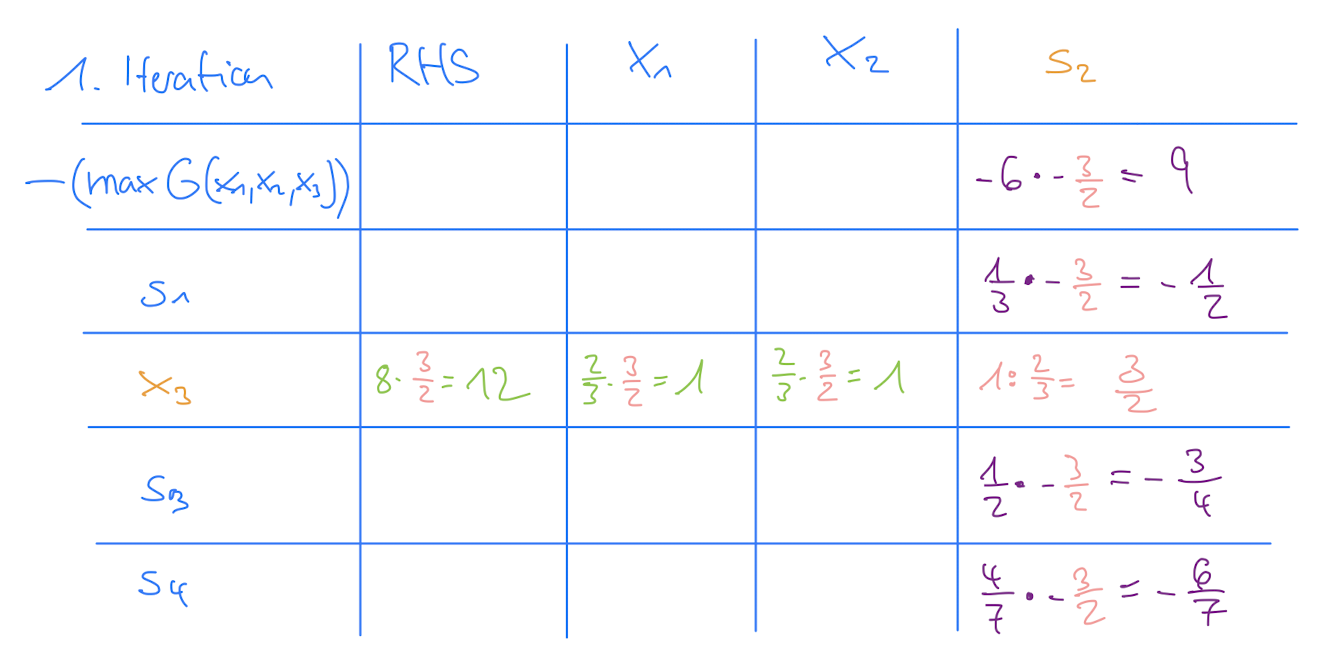 1. Iteration RHS x₁ x₂ s₂
-(max G(x₁,x₂,x₃)) -6 · -3/2 = 9
s₁ 1/3 · -3/2 = -1/2
x₃ 8 · 3/2 = 12 2/3 · 3/2 = 1 2/3 · 3/2 = 1 1 : 2/3 = 3/2
s₃ 1/2 · -3/2 = -3/4
s₄ 4/7 · -3/2 = -6/7